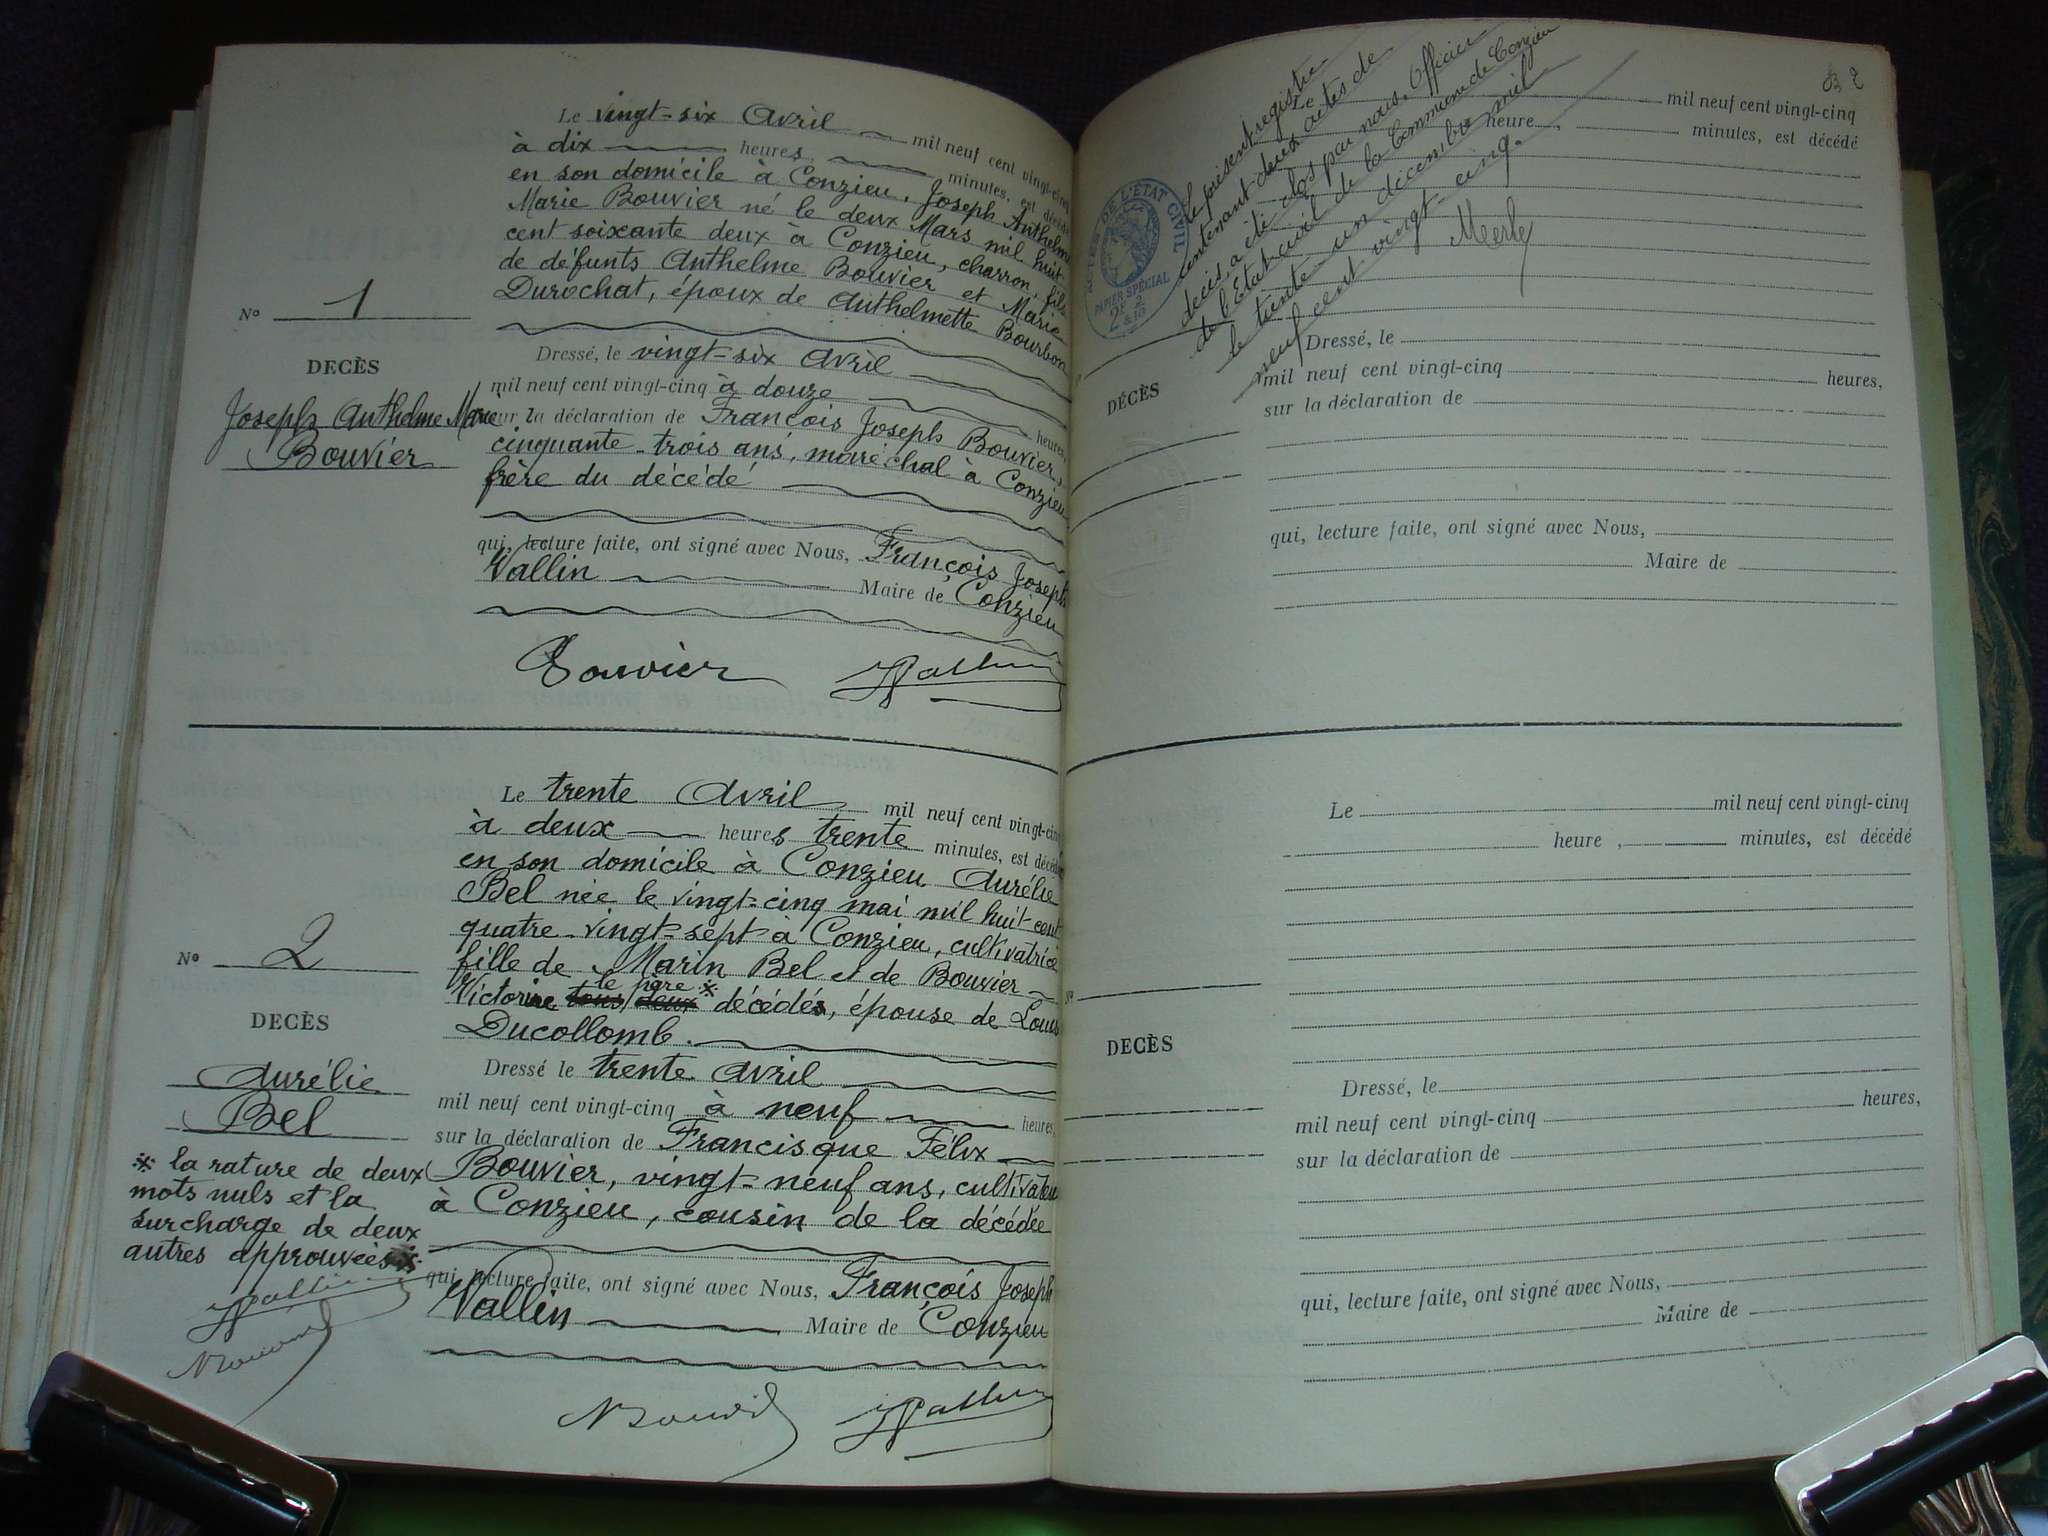 Le vingt-six Avril mil neuf cent vingt-cinq
à dix heures, minutes, est décédé
en son domicile à Conzieu, Joseph Anthelme
Marie Bouvier né le deux Mars mil huit
cent soixante deux à Conzieu, charron, fils
de défunts Anthelme Bouvier et Marie
Durochat, époux de Anthelmette Bourbon
No 1
DECÈS
Joseph Anthelme Marie
Bouvier
Dressé, le vingt-six Avril
mil neuf cent vingt-cinq à douze heures,
sur la déclaration de François Joseph Bouvier,
cinquante-trois ans, maréchal à Conzieu
frère du décédé
qui, lecture faite, ont signé avec Nous, François Joseph
Vallin Maire de Conzieu
Bouvier Vallin
Le trente Avril mil neuf cent vingt-cinq
à deux heures trente minutes, est décédée
en son domicile à Conzieu Aurélie
Bel née le vingt-cinq mai mil huit-cent
quatre-vingt-sept à Conzieu, cultivatrice
fille de Marin Bel et de Bouvier
le père
Victorine tous deux * décédés, épouse de Louis
Ducollomb.
No 2
DECÈS
Aurélie
Bel
Dressé le trente Avril
mil neuf cent vingt-cinq à neuf heures,
sur la déclaration de Francisque Félix
Bouvier, vingt-neuf ans, cultivateur
à Conzieu, cousin de la décédée
* la rature de deux
mots nuls et la
surcharge de deux
autres approuvées
Vallin
qui lecture faite, ont signé avec Nous, François Joseph
Vallin Maire de Conzieu
Vallin
32
le présent registre
contenant deux actes de
décès, a été clos par nous, Officier
de l'Etat civil de la Commune de Conzieu
le trente-un décembre mil
neuf cent vingt-cinq.
Merle
ACTES DE L'ÉTAT CIVIL
PAPIER SPÉCIAL
Le mil neuf cent vingt-cinq
heure, minutes, est décédé
DÉCÈS
Dressé, le
mil neuf cent vingt-cinq heures,
sur la déclaration de
qui, lecture faite, ont signé avec Nous,
Maire de
Le mil neuf cent vingt-cinq
heure, minutes, est décédé
No
DECÈS
Dressé, le
mil neuf cent vingt-cinq heures,
sur la déclaration de
qui, lecture faite, ont signé avec Nous,
Maire de